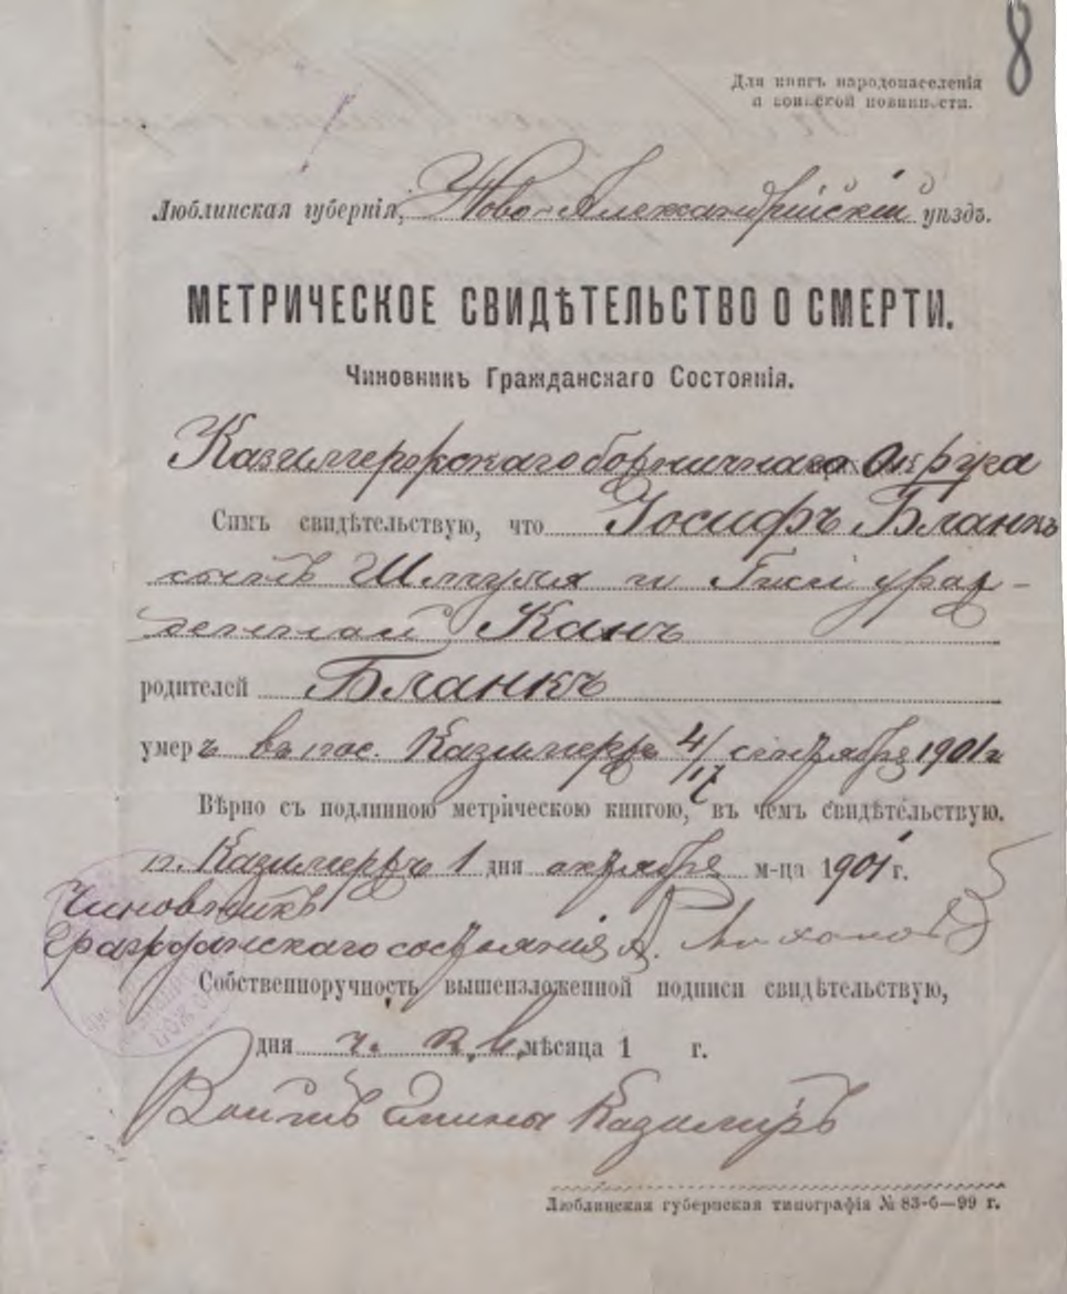 8
Для книгъ народонаселенія
и воинской повинности.
Люблинская губернія, Ново-Александрійскій уѣздъ.
МЕТРИЧЕСКОЕ СВИДѢТЕЛЬСТВО О СМЕРТИ.
Чиновникъ Гражданскаго Состоянія.
Казимержскаго божничнаго Округа
Симъ свидѣтельствую, что Іосифъ Бланкъ
сынъ Шмуля и Гиси урож-
денной Канъ
родителей Бланкъ
умеръ въ пос. Казимержъ 4/17 сентября 1901 г
Вѣрно съ подлинною метрическою книгою, въ чемъ свидѣтельствую.
п. Казимержъ 1 дня октября м-ца 1901 г.
Чиновникъ
Гражданскаго состоянія А.
Собственноручность вышеизложенной подписи свидѣтельствую,
дня ч. мѣсяца 1 г.
Войтъ Гмины Казимѣръ
Люблинская губернская типографія № 83-6—99 г.